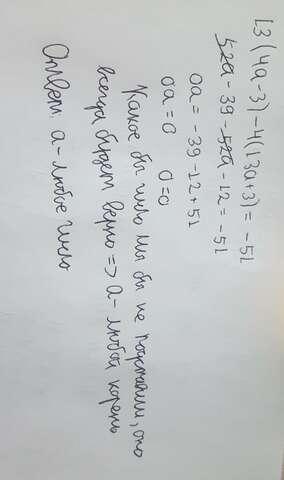 13(4a-3)-4(13a+3)=-51
52a-39-52a-12=-51
0a=-39-12+51
0a=0 0=0
Какое бы число мы бы не поставили, оно
всегда будет верно => a-любой корень
Ответ: a-любое число